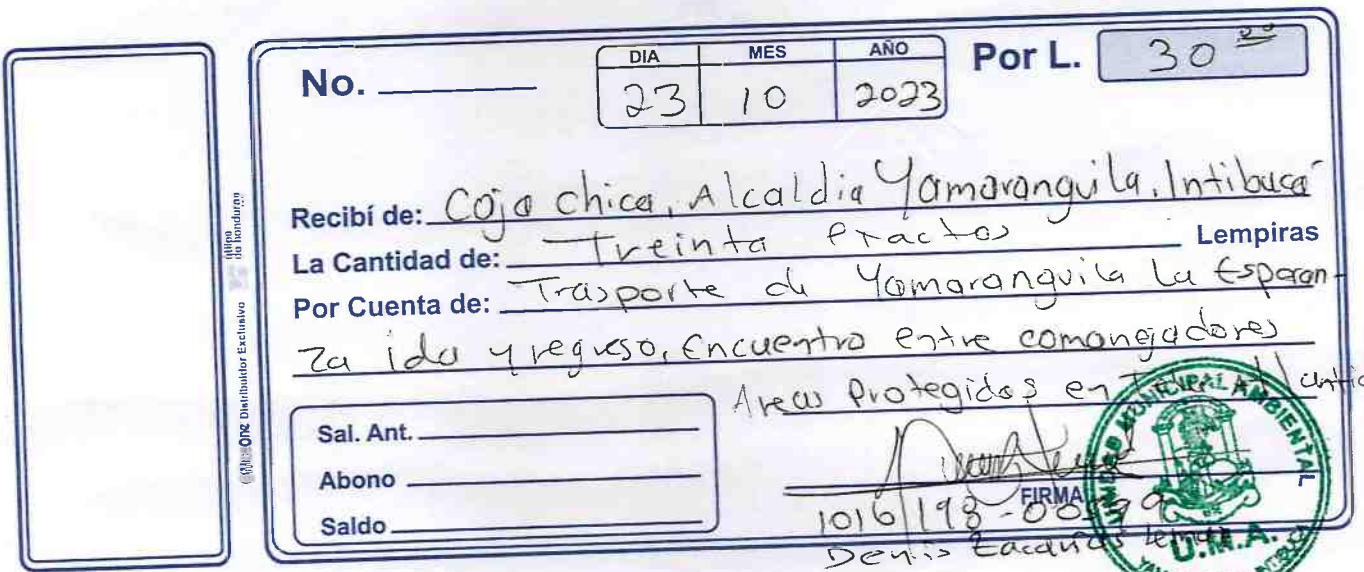 No.
DIA MES AÑO
23 10 2023
Por L. 30 00
Recibí de: Caja chica, Alcaldia Yamaranguila, Intibucá
La Cantidad de: Treinta exactos Lempiras
Por Cuenta de: Trasporte de Yamaranguila La Esperan-
za ida y regreso, Encuentro entre comanejadores
Areas Protegidas en
Sal. Ant.
Abono
Saldo
FIRMA
Denis
One Distribuidor Exclusivo
UNIDAD MUNICIPAL AMBIENTAL
U.M.A.